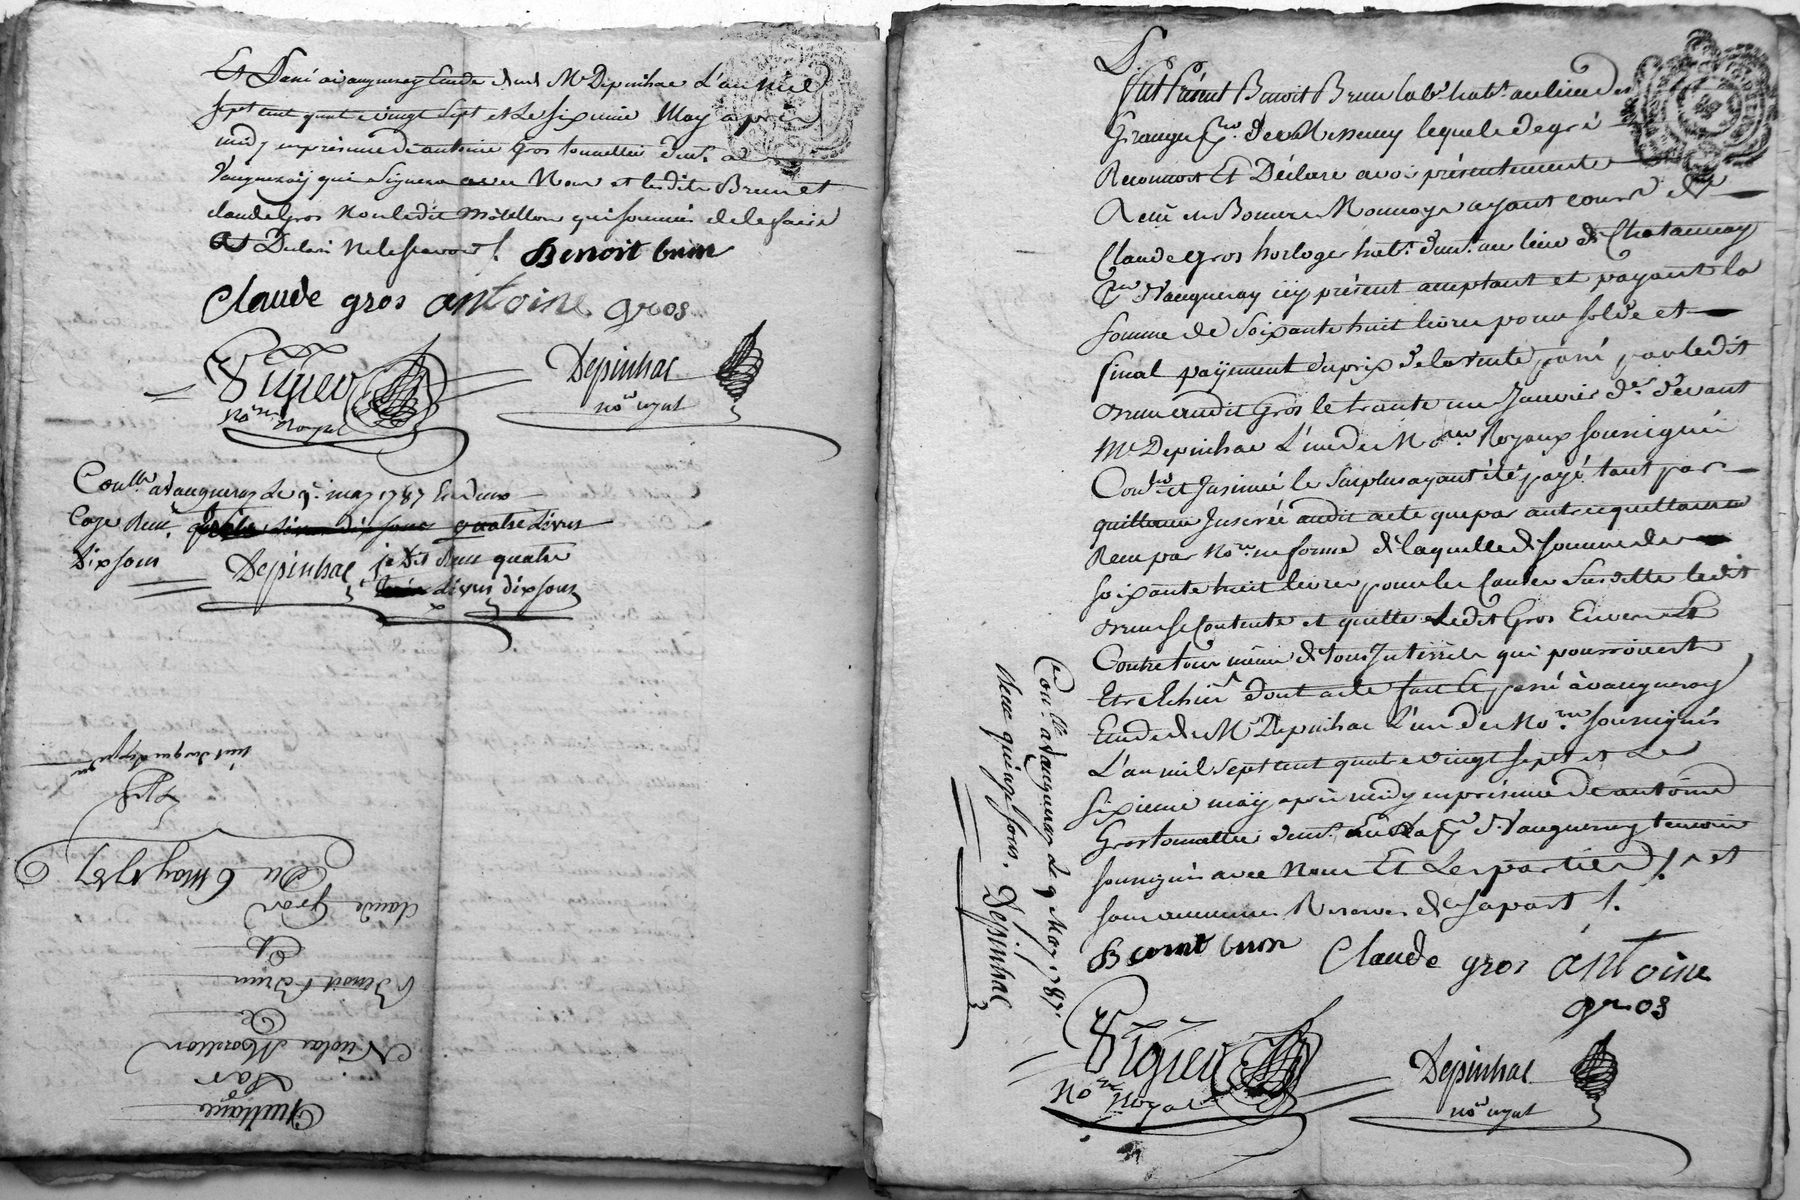 Et Passé a vaugneray Etude dud. Me Depinhac L'an mil
sept cent quatre vingt Sept et Le six ieme May après
midy en présence de antoine Gros tonnellier dem.t a
Vaugneray qui Signera avec Nous et lesdits Brun et
claude Gros Non ledit Morellon qui sommés de le faire
ont Declaré ne le scavoir /. Benoit brun
Claude gros antoine gros
Viguer Depinhac
No.re Royal no.re royal
Con.llé a Vaugneray le 9.e may 1787 End deux
Caze Reçu quatre Livres
Dix sous Depinhac je dis Reçu quatre
Livres dix sous
Quittance
Par
Nicolas Morellon
à
Benoit Brun
Et
claude Gros
Du 6 may 1787
Fut Présent Benoit Brun lab.r hab.t au lieu des
Granges p.sse de Messimy lequel de gré
Reconnoit Et Déclare avoir présentement
Reçu en Bonne Monnoye ayant cours de
Claude Gros horloger hab.t dem.t au lieu de Chatannay
p.sse de Vaugneray icy présent acceptant et payant la
somme de Soixante huit livres pour solde et
final payement du prix de la vente passé par ledit
Brun audit Gros le trente un Janvier d.er devant
Me Depinhac L'un des No.res Royaux soussignés
Con.lé et Insinué le surplus ayant été payé tant par
quittance Inserée audit acte que par autre quittance
Reçu par No.re en forme de laquelle ditte somme de
soixante huit livres pour les Causes Susdittes ledit
Brun se Contente et quitte Ledit Gros Envers Et
Contre tous même de tous Interrêts qui pourroient
Etre Echus dont acte fait Et passé à vaugneray
Etude de Me Depinhac L'un des No.res soussignés
L'an mil Sept cent quatre vingt sept et Le
sixieme may après midy en présence de antoine
Gros tonnellier dem.t p.sse de Vaugneray temoin
soussigné avec Nous Et Les parties /. et
sans comunes Reserves de sa part /.
Benoit brun Claude gros antoine
gros
Viguer Depinhac
No.re Royal no.re royal
Con.llé a Vaugneray Le 9 May 1787.
Reçu quinze sous. Depinhac